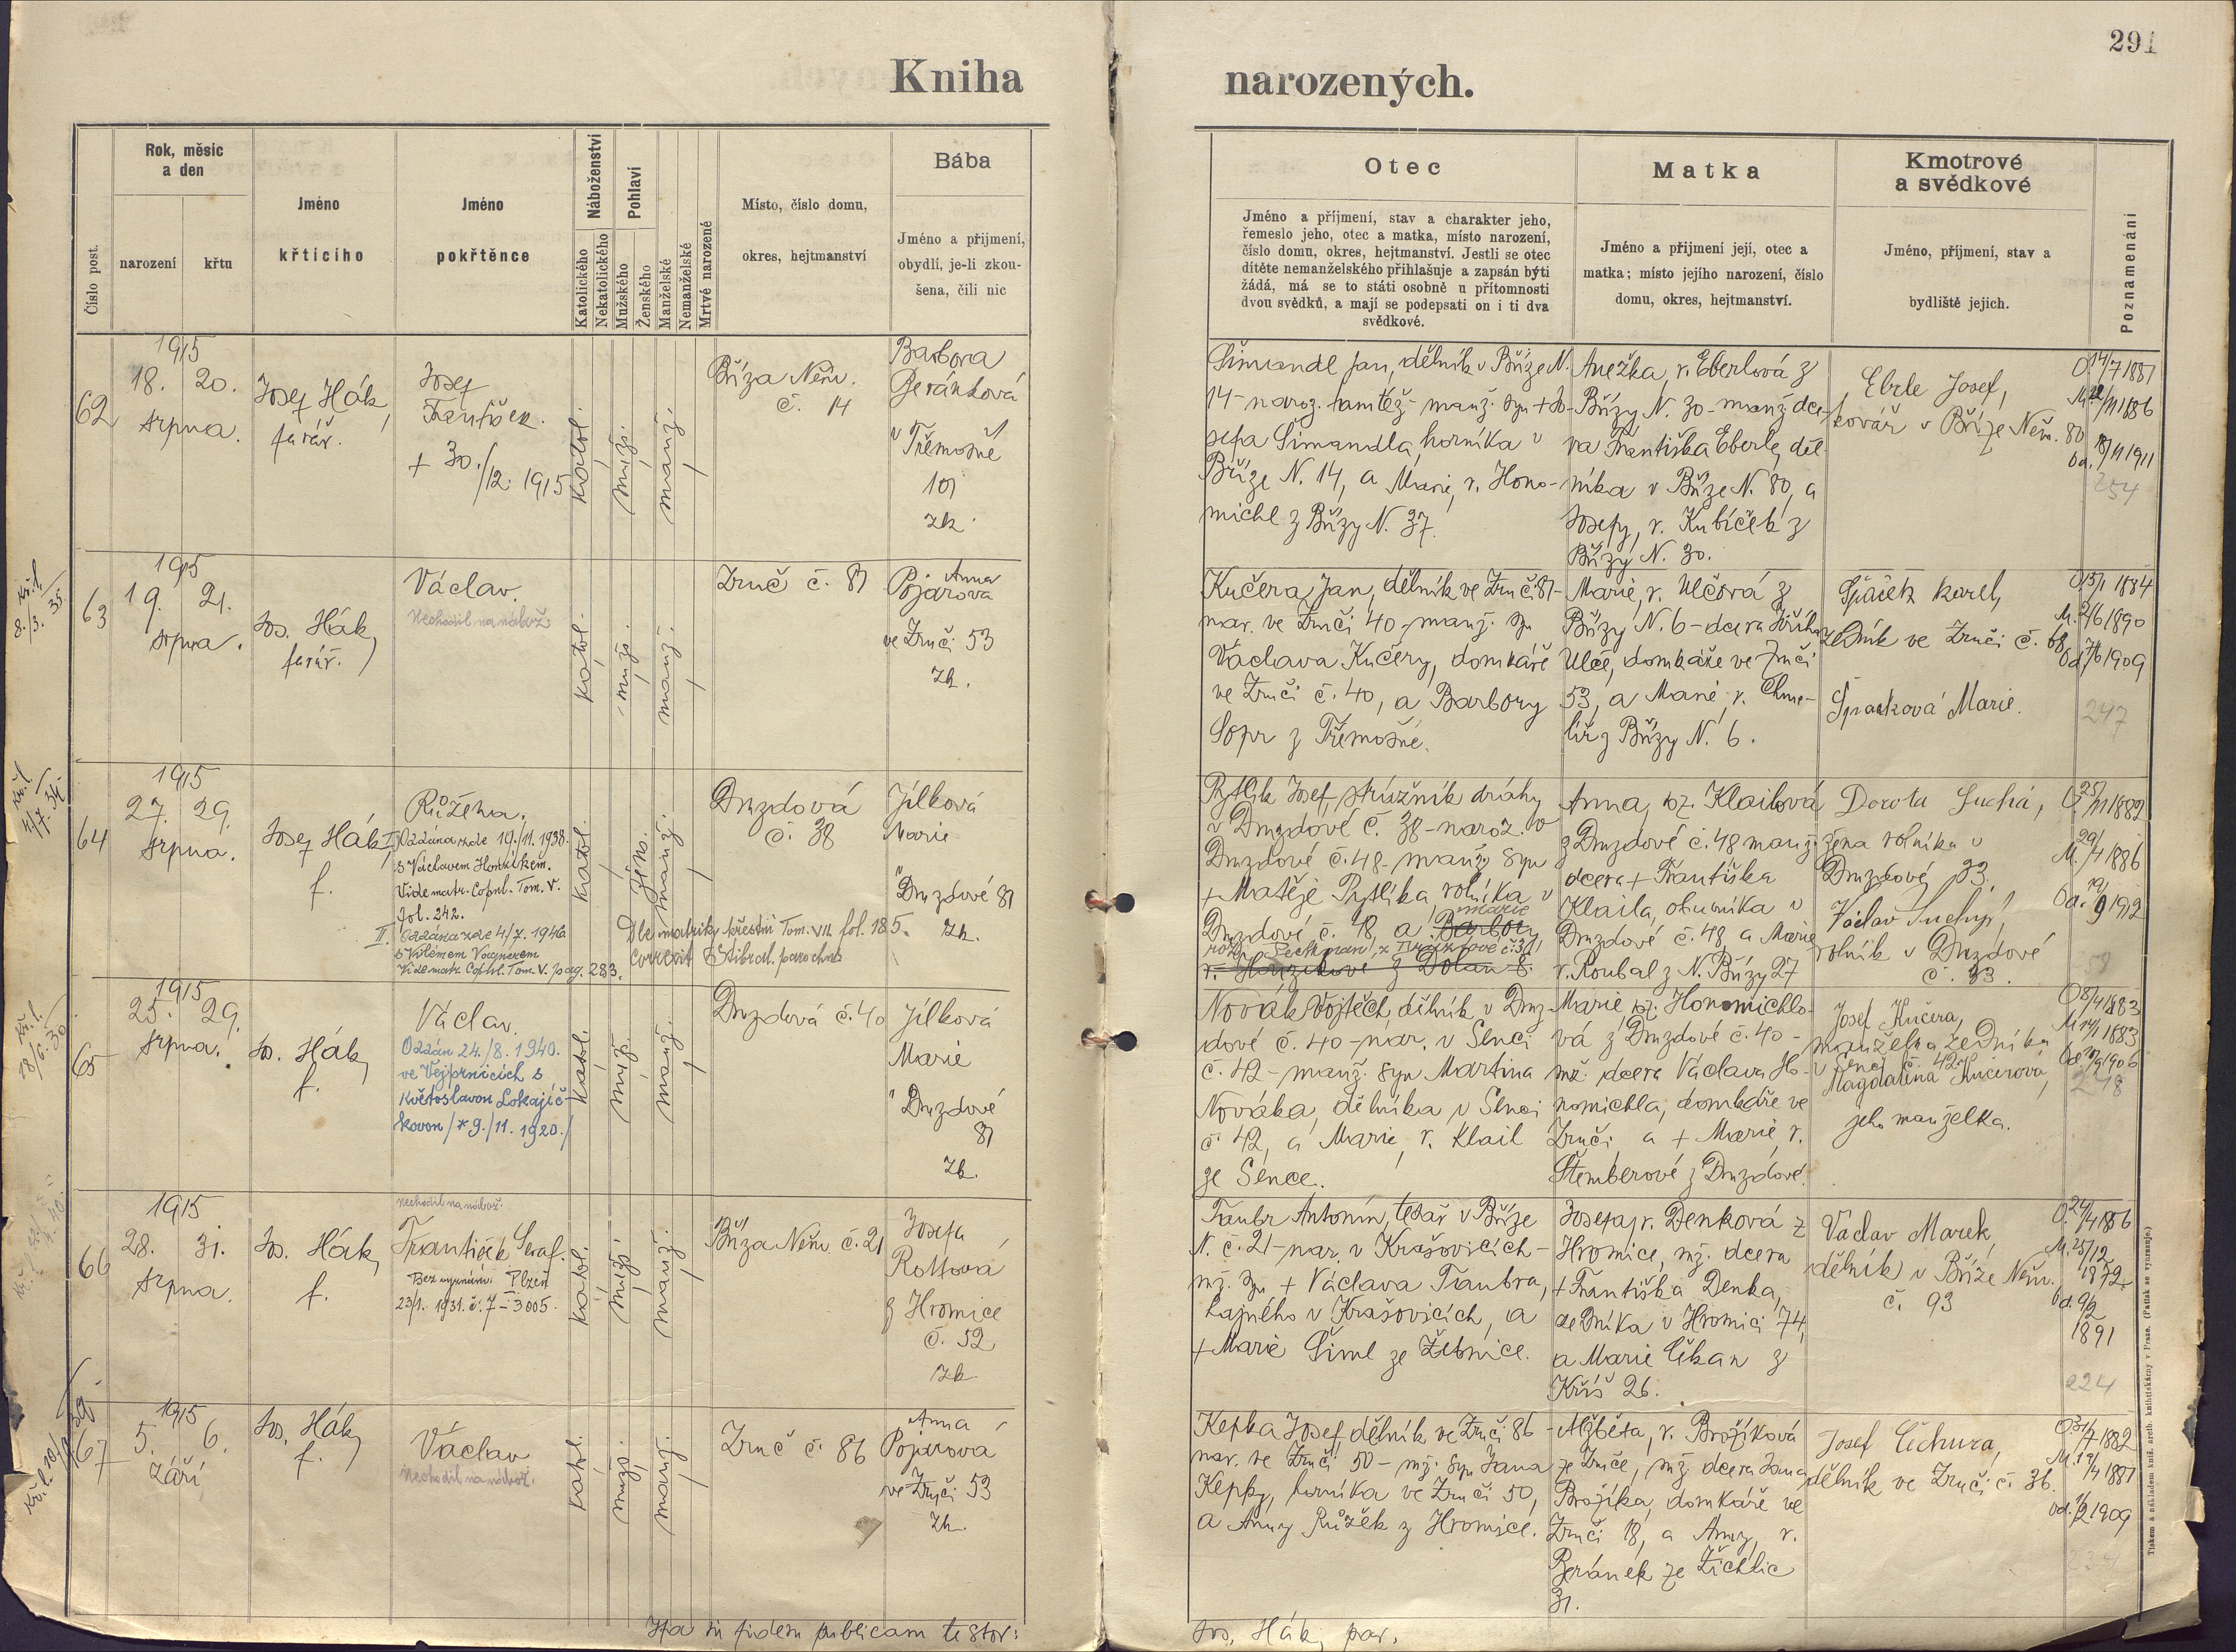 291
Kniha narozených.
Číslo post.
Rok, měsíc
a den
narození
křtu
Jméno
křticího
Jméno
pokřtěnce
Náboženství
Katolického
Nekatolického
Pohlaví
Mužského
Ženského
Manželské
Nemanželské
Mrtvé narozené
Místo, číslo domu,
okres, hejtmanství
Bába
Jméno a přijmení,
obydlí, je-li zkou-
šena, čili nic
Otec
Jméno a příjmení, stav a charakter jeho,
řemeslo jeho, otec a matka, místo narození,
číslo domu, okres, hejtmanství. Jestli se otec
dítěte nemanželského přihlašuje a zapsán býti
žádá, má se to státi osobně u přítomnosti
dvou svědků, a mají se podepsati on i ti dva
svědkové.
Matka
Jméno a přijmení její, otec a
matka; místo jejího narození, číslo
domu, okres, hejtmanství.
Kmotrové
a svědkové
Jméno, příjmení, stav a
bydliště jejich.
Poznamenání
62
1915
18. 20.
srpna.
Josef Hák,
farář.
Josef
František.
+ 30./12. 1915
katol.
muž.
manž.
Bříza Něm.
č. 14
Barbora
Beránková
v Třemošné
101
zk.
Šimandl Jan, dělník v Bříze N.
14 - naroz. tamtéž - manž. syn + Jo-
sefa Šimandla, horníka v
Bříze N. 14, a Marie, r. Hono-
michl z Břízy N. 37.
Anežka, r. Eberlová z
Břízy N. 30 - manž. dce-
ra Františka Eberle, děl-
níka v Bříze N. 80, a
Josefy, r. Kubíček z
Břízy N. 30.
Eberle Josef,
kovář v Bříze Něm. 80
O 14/7 1881
M. 22/11 1886
Od. 18/11 1911
254
Kř. l.
8./3. 35
63
1915
19. 21.
srpna.
Jos. Hák,
farář.
Václav.
Nechodil na nábož.
katol.
muž.
manž.
Zruč č. 81
Anna
Pojarová
ve Zruči 53
zk.
Kučera Jan, dělník ve Zruč č. 81 -
nar. ve Zruči 40 - manž. syn
Václava Kučery, domkáře
ve Zruči č. 40, a Barbory
Sopr z Třemošné.
Marie, r. Ulčová z
Břízy N. 6 - dcera Jiřího
Ulče, domkáře ve Zruči
53, a Marie, r. Chme-
líř z Břízy N. 6.
Špaček Karel,
zedník ve Zruči č. 68
Špačková Marie.
O 15/1 1884
M. 21/6 1890
Od. 7/6 1909
247
Kř. l.
4/7. 34
64
1915
27. 29.
srpna.
Josef Hák,
f.
Růžena.
I. Oddána zde 19./11. 1938.
s Václavem Honzíkem.
Vide matr. Copul. Tom. V.
fol. 242.
II. Oddána zde 4/7. 1946
s Vilémem Vagnerem
Vide matr. Copul. Tom. V. pag. 283.
katol.
žens.
manž.
Dle matriky křestní Tom. VII. fol. 185.
correxit Stibral, parochus
Druzdová
č. 38
Jílková
Marie
v Druzdové 81
zk.
Pytlík Josef, strážník dráhy
v Druzdové č. 38 - naroz. v
Druzdové č. 48 - manž. syn
+ Matěje Pytlíka, rolníka v
Druzdové č. 48, a Barbory
Marie
roz. Peckman z Druzdové č. 31
r. Honzíkové z Dolan 8.
Anna, roz. Klailová
z Druzdové č. 48 manž.
dcera + Františka
Klaila, obuvníka v
Druzdové č. 48, a Marie
r. Roubal z N. Břízy 27
Dorota Suchá,
žena rolníka v
Druzdové 33.
Václav Suchý,
rolník v Druzdové
č. 33.
O. 25/11 1882
M. 29/4 1886
Od. 19/9 1912
Kř. l.
28/6. 30
65
1915
25. 29.
srpna.
Jos. Hák,
f.
Václav.
Oddán 24./8. 1940.
ve Vejprnicích s
Květoslavou Lokajíč-
kovou /*9./11. 1920./
katol.
muž.
manž.
Druzdová č. 40
Jílková
Marie
v Druzdové
81
zk.
Novák Vojtěch, dělník v Druz-
dové č. 40 - nar. v Senci
č. 42 - manž. syn Martina
Nováka, dělníka v Senci
č. 42, a Marie, r. Klail
ze Sence.
Marie, roz. Honomichlo-
vá z Druzdové č. 40 -
mž. dcera Václava Ho-
nomichla, domkáře ve
Zruči a + Marie, r.
Štemberové z Druzdové.
Josef Kučera,
manželka zedníka
v Senci č. 42.
Magdalena Kučerová,
jeho manželka.
O 8/4 1883
M 14/1 1883
1906
248
66
1915
28. 31.
srpna.
Jos. Hák,
f.
Nechodil na nábož.
František Seraf.
Bez vyznání: Plzeň
23/1. 1931. č. 7-3005.
katol.
muž.
manž.
Bříza Něm. č. 21
Josefa
Rottová
z Hromice
č. 52
zk.
Taubr Antonín, tesař v Bříze
N. č. 21 - nar. v Krašovicích -
mž. syn + Václava Taubra,
hajného v Krašovicích, a
+ Marie Šiml ze Žebnice.
Josefa, r. Denková z
Hromice, mž. dcera
+ Františka Denka,
zedníka v Hromici 74,
a Marie Cikan z
Kříš 26.
Václav Marek,
dělník v Bříze Něm.
č. 93
O. 24/4 1856
M. 25/12
1872
Od. 9/2
1891
224
67
1915
5. 6.
září
Jos. Hák,
f.
Václav
Nechodil na nábož.
katol.
muž.
manž.
Zruč č. 86
Anna
Pojarová
ve Zruči 53
zk.
Kepka Josef, dělník ve Zruči 86 -
nar. ve Zruči 50 - mž. syn Jana
Kepky, horníka ve Zruči 50,
a Anny Růžek z Hromice.
Alžběta, r. Brožíková
ze Zruče, mž. dcera Jana
Brožíka, domkáře ve
Zruči 18, a Anny, r.
Beránek ze Žichlic
31.
Josef Čichura,
dělník ve Zruči č. 36.
O 31/7 1882
M. 19/4 1881
od. 1/2 1909
234
Ita in fidem publicam testor:
Jos. Hák, par.
Tiskem a nákladem kníž. arcib. knihtiskárny v Praze. (Patisk se vyhrazuje.)